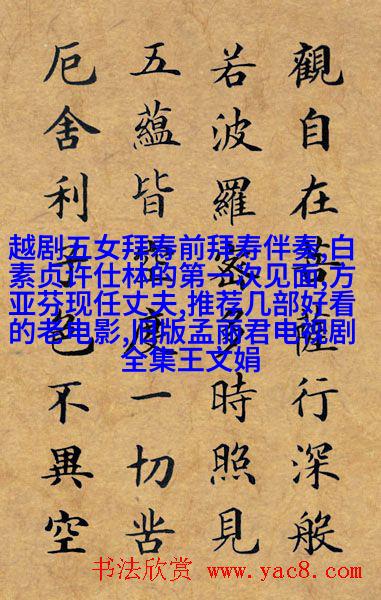 觀自在菩薩行深般
若波羅蜜多時照見
五蘊皆空度一切苦
厄舍利子色不異空
越剧五女拜寿前拜寿伴奏,白
素贞许仕林的第一次见面,方
亚芬现任丈夫,推荐几部好看
的老电影,旧版孟丽君电视剧
全集王文娟
书法欣赏 www.yac8.com